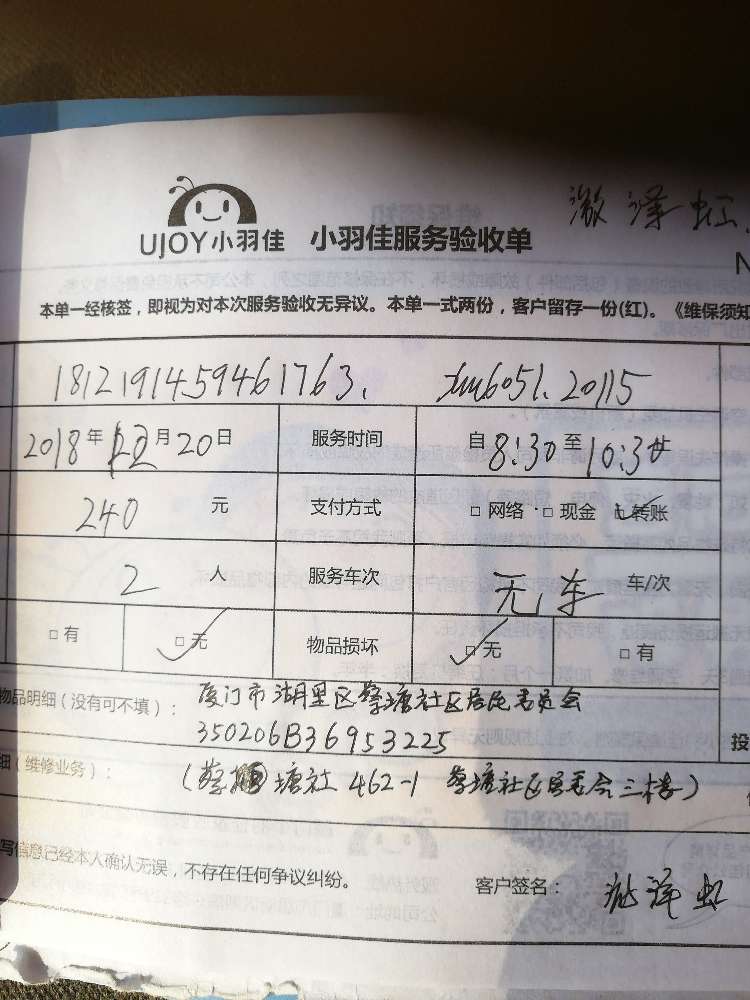 UJOY小羽佳 小羽佳服务验收单
泽虹
N
本单一经核签，即视为对本次服务验收无异议。本单一式两份，客户留存一份(红)。《维保须知
1812191459461763. xm6051.20115
2018年12月20日 服务时间 自8:30至10:30
240元 支付方式 □网络 □现金 □✓转账
2人 服务车次 无车 车/次
□有 □✓无 物品损坏 □✓无 □有
物品明细（没有可不填）：厦门市湖里区蔡塘社区居民委员会
350206B36953225 投
细（维修业务）：（蔡塘社462-1 蔡塘社区居委会三楼）
写信息已经本人确认无误，不存在任何争议纠纷。 客户签名：泽虹